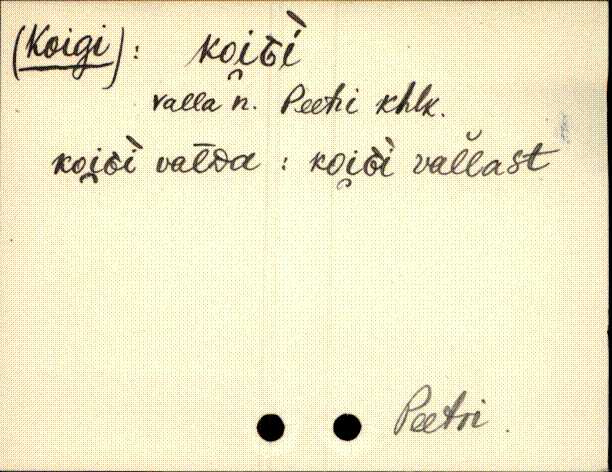 (Koigi): koi̯ɢì
valla n. Peetri khlk.
koi̯ɢì valda : koi̯ɢì vallast
Peetri.